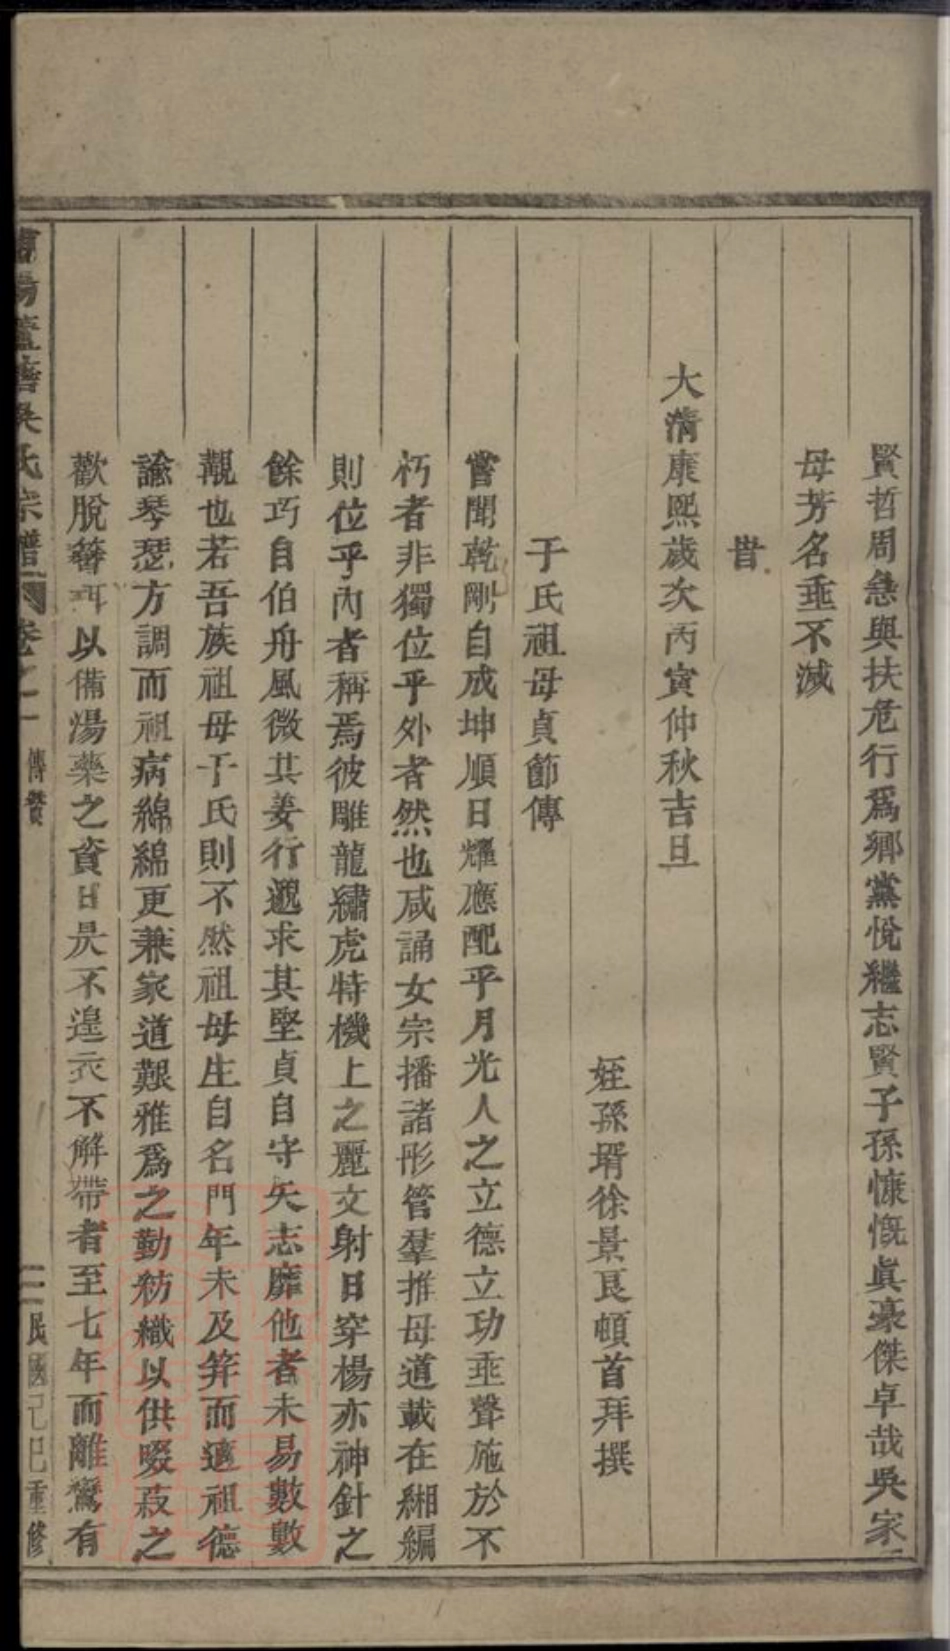 賢哲周急與扶危行爲鄉黨悅繼志賢子孫慷慨眞豪傑卓哉吳家
母芳名垂不滅
旹
大淸康熙歲次丙寅仲秋吉旦
姪孫壻徐景良頓首拜撰
于氏祖母貞節傳
嘗聞乾剛自成坤順日耀應配乎月光人之立德立功垂聲施於不
朽者非獨位乎外者然也咸誦女宗播諸彤管羣推母道載在緗編
則位乎內者稱焉彼雕龍繡虎特機上之麗文射日穿楊亦神針之
餘巧自伯舟風微其姜行邈求其堅貞自守矢志靡他者未易數數
覯也若吾族祖母于氏則不然祖母生自名門年未及笄而適祖德
諭琴瑟方調而祖病綿綿更兼家道艱雅爲之勤紡織以供啜菽之
歡脫簪珥以備湯藥之資日昃不遑衣不解帶者至七年而離鸞有
吳氏宗譜 卷之一 傳贊 二 民國己巳重修